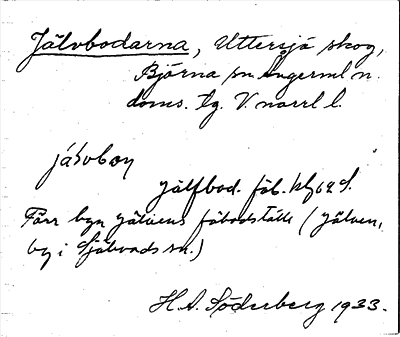 Jälvbodarna, Uttersjö skog,
Björna sn Ångerml n.
doms. tg. V. norrl l.
jälvbon
jälfbod. fäb. kbl 62 S.
Förr byn Jälvens fäbodställe (Jälven,
by i Själevads sn.)
H.A. Söderberg 1933.